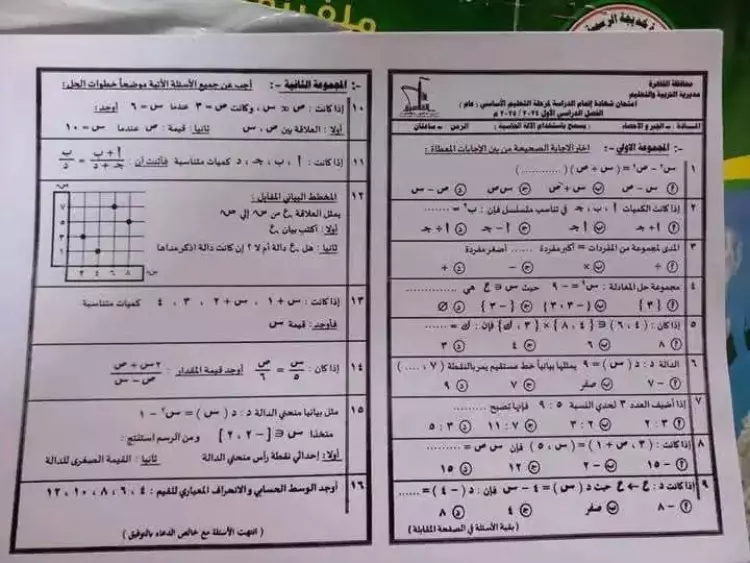 محافظة القاهرة
مديرية التربية والتعليم
امتحان شهادة إتمام الدراسة لمرحلة التعليم الأساسي ( عام )
الفصل الدراسي الأول ٢٠٢٤ / ٢٠٢٥ م
المــادة : الجبر والإحصاء ( يسمح باستخدام الآلة الحاسبة ) الزمن : ساعتان
المجموعة الأولى :- اختر الإجابة الصحيحة من بين الإجابات المعطاة :
١ س٢ – ص٢ = ( س + ص ) ( ............ )
أ ص ب س + ص ج س ص د ص – س
٢ إذا كانت الكميات أ ، ب ، جـ في تناسب متسلسل فإن : ب٢ = .......
أ أ + جـ ب أ جـ ج أ – جـ د أ ÷ جـ
٣ المدى لمجموعة من المفردات = أكبر مفردة ...... أصغر مفردة
أ ÷ ب × ج – د +
٤ مجموعة حل المعادلة : س٢ = – ٩ حيث س ∈ ح هي ..........
أ { ٣ } ب { – ٣ ، ٣ } ج { – ٣ } د Ø
٥ إذا كان : ( ٤ ، ٦ ) ∈ { ٤ ، ٨ } × { ٣ ، ك } فإن : ك = ......
أ ٨ ب ٦ ج ٤ د ٣
٦ الدالة د : د ( س ) = ٩ يمثلها بيانياً خط مستقيم يمر بالنقطة ( ٧ ، .... )
أ – ٧ ب صفر ج ٧ د ٩
٧ إذا أضيف العدد ٣ لحدي النسبة ٥ : ٩ فإنها تصبح ..........
أ ٣ : ٢ ب ٢ : ٣ ج ٧ : ١١ د ٣ : ٥
٨ إذا كانت : ( ٣ ، ص + ١ ) = ( س ، ٥ ) فإن س ص = ........
أ – ١٥ ب – ٢ ج ١٢ د ١٥
٩ إذا كانت د : ح ← ح حيث د ( س ) = ٤ – س فإن : د ( – ٤ ) = ......
أ – ٨ ب صفر ج ٤ د ٨
( بقية الأسئلة في الصفحة المقابلة )
المجموعة الثانية :- أجب عن جميع الأسئلة الآتية موضحاً خطوات الحل :-
١٠ إذا كانت : ص ∝ س ، وكانت ص = ٣ عندما س = ٦ أوجد :
أولا : العلاقة بين ص ، س ثانيا : قيمة : ص عندما س = ١٠
١١ إذا كانت : أ ، ب ، جـ ، د كميات متناسبة فأثبت أن : أ + ب / جـ + د = ب / د
١٢ المخطط البياني المقابل :
يمثل العلاقة ع من سہ إلى صہ
أولا : أكتب بيان ع
ثانيا : هل ع دالة أم لا ؟ إن كانت دالة اذكر مداها
صہ
٧
٥
٣
١
٢ ٤ ٦ ٨
سہ
١٣ إذا كانت : س + ١ ، س + ٢ ، ٣ ، ٤ كميات متناسبة
فأوجد : قيمة س
١٤ إذا كان : س / ٥ = ص / ٦ أوجد قيمة المقدار : ٢ س + ص / ص – س
١٥ مثل بيانيا منحنى الدالة د : د ( س ) = س٢ – ١
متخذا س ∈ [ – ٢ ، ٢ ] ومن الرسم استنتج :
أولا : إحداثي نقطة رأس منحنى الدالة ثانيا : القيمة الصغرى للدالة
١٦ أوجد الوسط الحسابي والانحراف المعياري للقيم : ٤ ، ٦ ، ٨ ، ١٠ ، ١٢
( انتهت الأسئلة مع خالص الدعاء بالتوفيق )